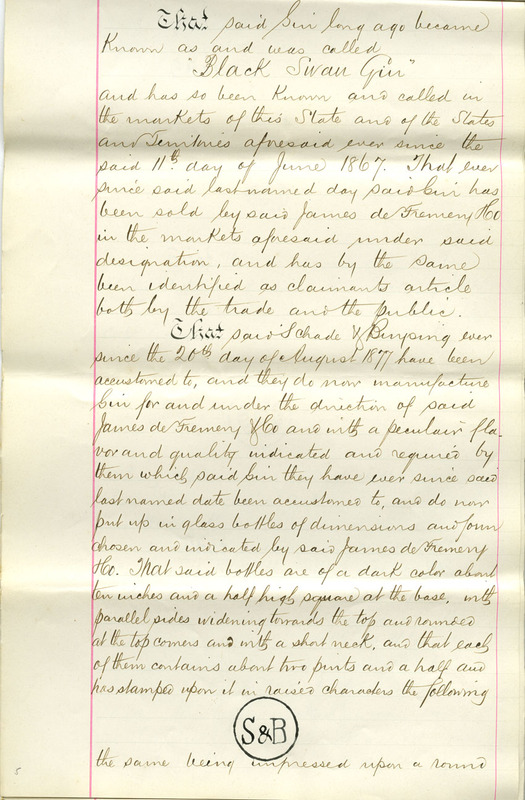 That said Gin long ago became
Known as and was called
"Black Swan Gin"
and has so been Known and called in
the markets of this State and of the States
and Territories aforesaid ever since the
said 11th day of June 1867. That ever
since said last named day said Gin has
been sold by said James de Fremery & Co
in the markets aforesaid under said
designation, and has by the same
been identified as claimants article
both by the trade and the public.
That said Schade & Buysing ever
since the 20th day of August 1877 have been
accustomed to, and they do now manufacture
Gin for and under the direction of said
James de Fremery & Co and with a peculair fla-
vor and quality indicated and required by
them which said Gin they have ever since said
last named date been accustomed to, and do now
put up in glass bottles of dimensions and form
chosen and indicated by said James de Fremery
& Co. That said bottles are of a dark color about
ten inches and a half high square at the base, with
parallel sides widening towards the top and rounded
at the top corners and with a short neck, and that each
of them contains about two pints and a half and
has stamped upon it in raised characters the following
S&B
the same being impressed upon a round
5